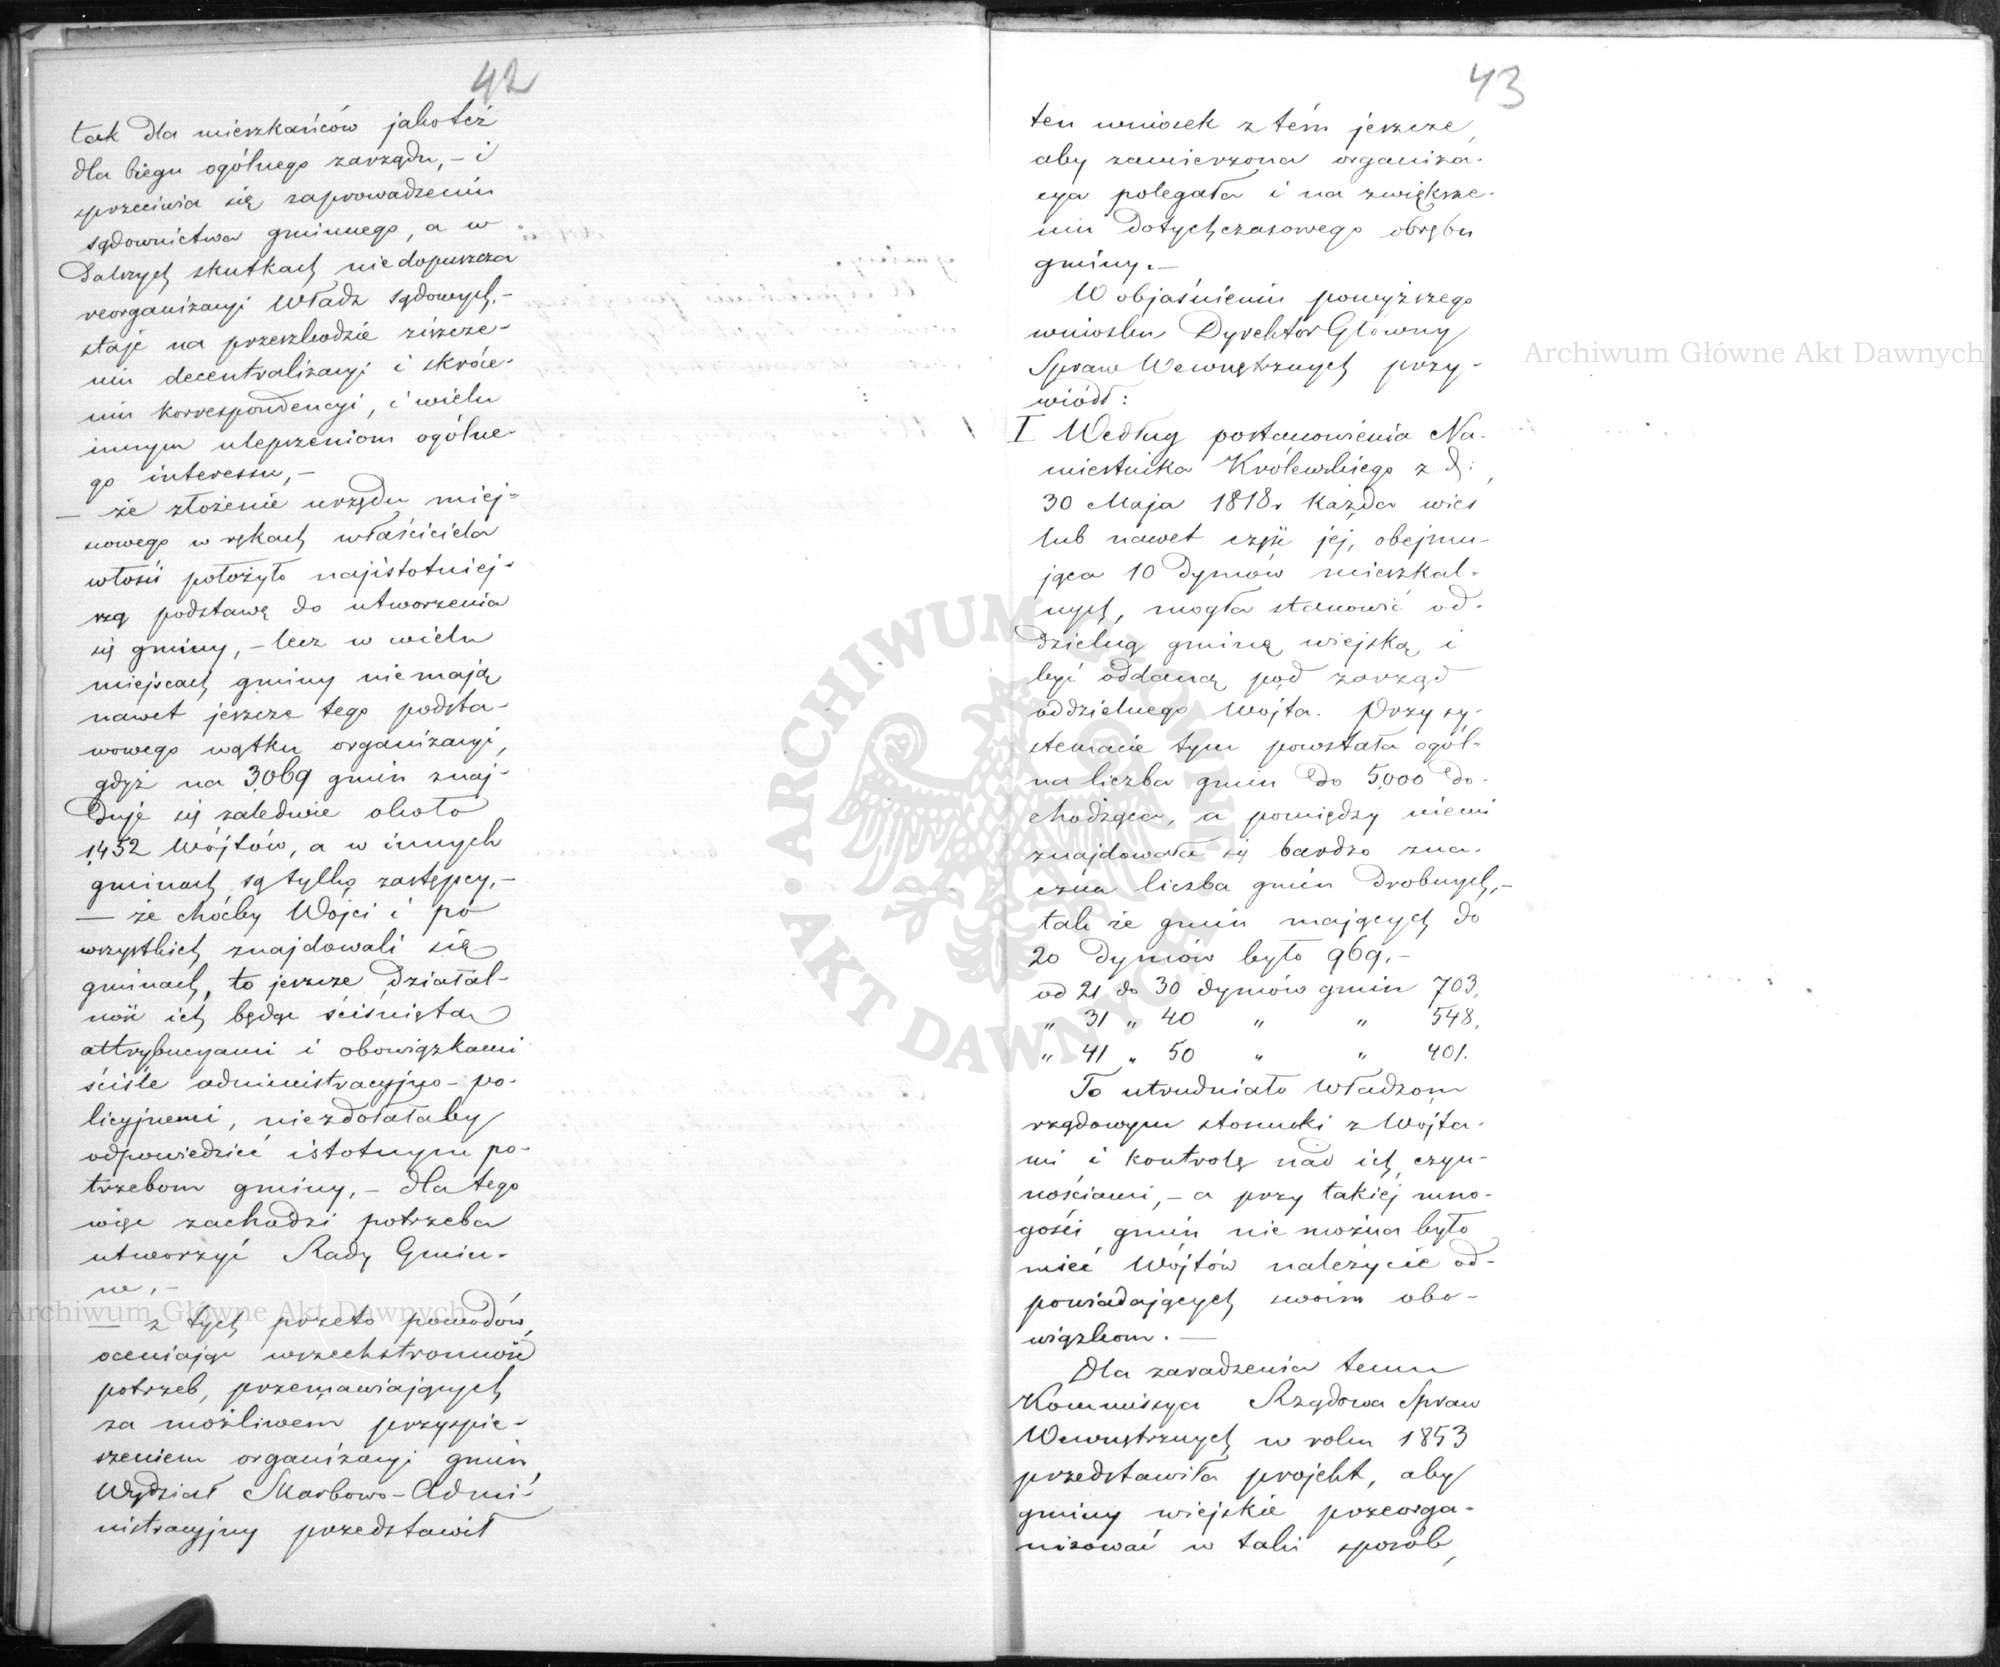 42
tak dla mieszkańców jakoteż
dla biegu ogólnego zarządu, – i
sprzeciwia się zaprowadzeniu
sądownictwa gminnego, a w
dalszych skutkach niedopuszcza
reorganizacyi Władz sądowych, –
staje na przeszkodzie ziszcze-
niu decentralizacyi i skróce-
niu korrespondencyi, i wielu
innym ulepszeniom ogólne-
go interessu, –
— że złożenie urzędu miej-
scowego w rękach właściciela
włości położyło najistotniej-
szą podstawę do utworzenia
się gminy, – lecz w wielu
miejscach gminy nie mają
nawet jeszcze tego podsta-
wowego wątku organizacyi,
gdyż na 3,069 gmin znaj-
duje się zaledwie około
1,452 Wójtów, a w innych
gminach są tylko zastępcy, –
— że choćby Wójci i po
wszystkich znajdowali się
gminach, to jeszcze działal-
ność ich będąc ściśnięta
attrybucyami i obowiązkami
ściśle administracyjno-po-
licyjnemi, niezdołałaby
odpowiedzieć istotnym po-
trzebom gminy, – dla tego
więc zachodzi potrzeba
utworzyć Rady Gmin-
ne, –
— z tych przeto powodów,
oceniając wszechstronność
potrzeb, przemawiających
za możliwem przyspie-
szeniem organizacyi gmin,
Wydział Skarbowo-Admi-
nistracyjny przedstawił
43
ten wniosek z tém jeszcze,
aby zamierzona organiza-
cya polegała i na zwiększe-
niu dotychczasowego obrębu
gminy. —
W objaśnieniu powyższego
wniosku Dyrektor Główny
Spraw Wewnętrznych przy-
wiódł:
I Według postanowienia Na-
miestnika Królewskiego z d:
30 Maja 1818r każda wieś
lub nawet część jej, obejmu-
jąca 10 dymów mieszkal-
nych, mogła stanowić od-
dzielną gminę wiejską i
być oddaną pod zarząd
oddzielnego Wójta. Przy sy-
stemacie tym powstała ogól-
na liczba gmin do 5,000 do-
chodząca, a pomiędzy niemi
znajdowała się bardzo zna-
czna liczba gmin drobnych, –
tak że gmin mających do
20 dymów było 969, –
od 21 do 30 dymów gmin 703,
„ 31 „ 40 „ „ 548,
„ 41 „ 50 „ „ 401.
To utrudniało Władzom
rządowym stosunki z Wójta-
mi i kontrolę nad ich czyn-
nościami, – a przy takiej mno-
gości gmin nie można było
mieć Wójtów należycie od-
powiadających swoim obo-
wiązkom. —
Dla zaradzenia temu
Kommissya Rządowa Spraw
Wewnętrznych w roku 1853
przedstawiła projekt, aby
gminy wiejskie przeorga-
nizować w taki sposób,
Archiwum Główne Akt Dawnych
Archiwum Główne Akt Dawnych
ARCHIWUM GŁÓWNE AKT DAWNYCH